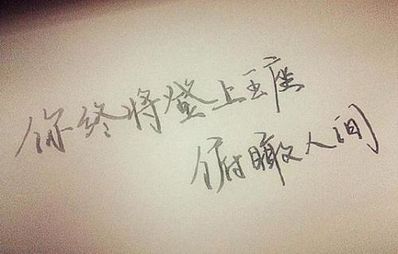 你终将登上王座
俯瞰人间